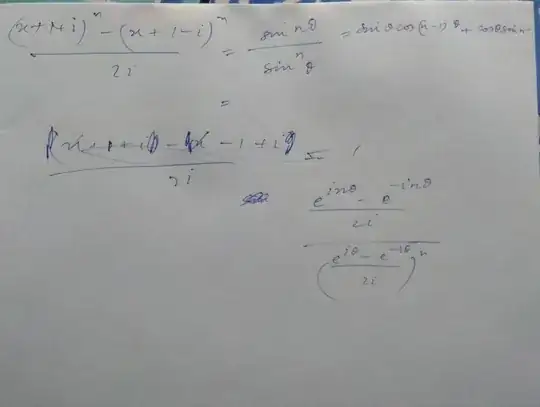 ((x+1+i)^n - (x+1-i)^n) / 2i = sin nθ / sin^n θ = sin θ cos(n-1)θ + cosθ sin n-
=
(x+1+i) - x - 1 + i) / 2i =
((e^{inθ} - e^{-inθ}) / 2i) / ((e^{iθ} - e^{-iθ}) / 2i)^n